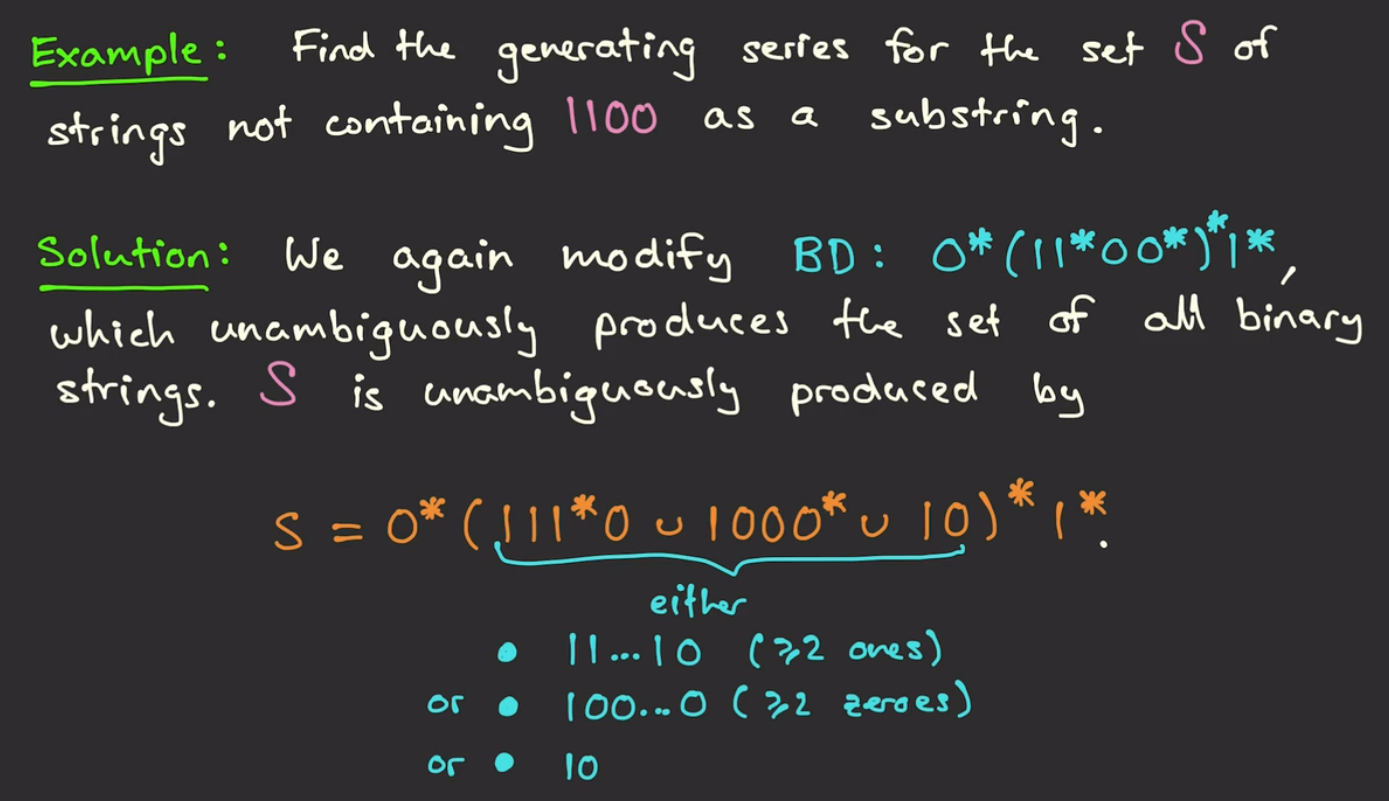 Example: Find the generating series for the set S of
strings not containing 1100 as a substring.
Solution: We again modify BD: 0*(11*00*)*1*,
which unambiguously produces the set of all binary
strings. S is unambiguously produced by
S = 0*(111*0 ∪ 1000* ∪ 10)*1*.
either
• 11...10 (⩾2 ones)
or • 100...0 (⩾2 zeroes)
or • 10